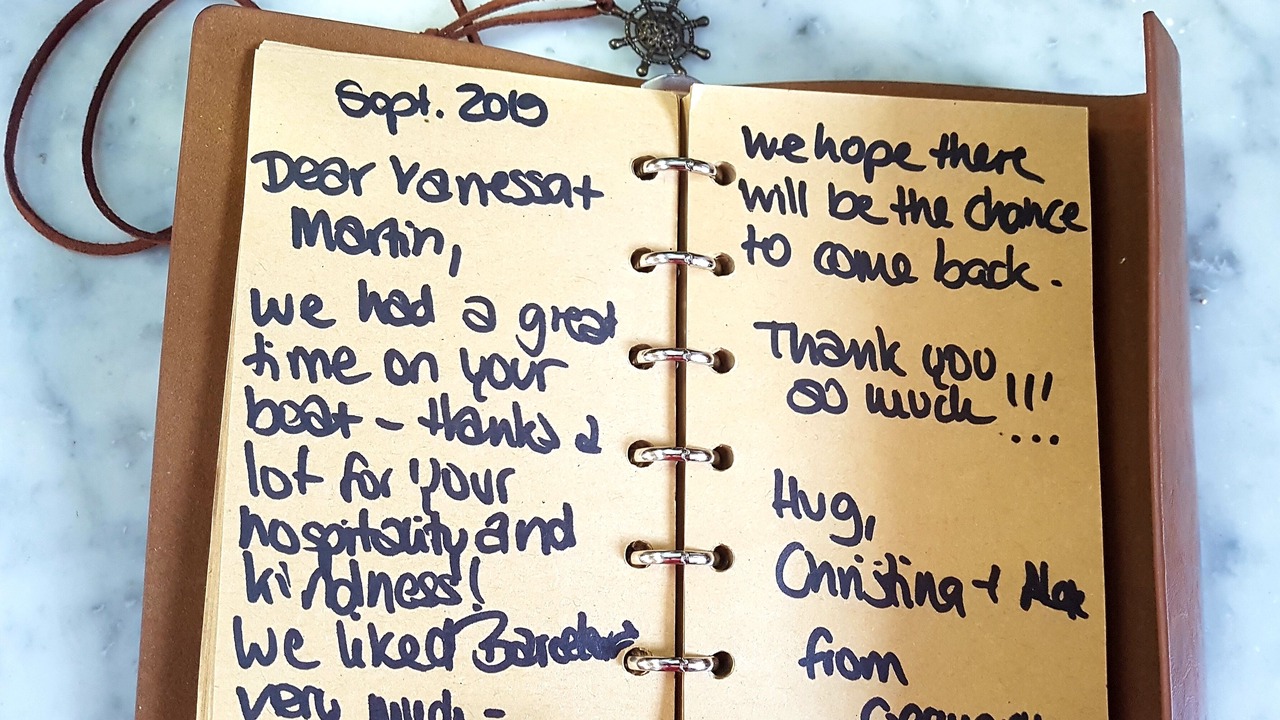 Sept. 2019
Dear Vanessa +
Martin,
we had a great
time on your
boat - thanks a
lot for your
hospitality and
kindness!
We liked Barcelona
very much -
we hope there
will be the chance
to come back.
Thank you
so much !!!
Hug,
Christina + Alex
from
Germany